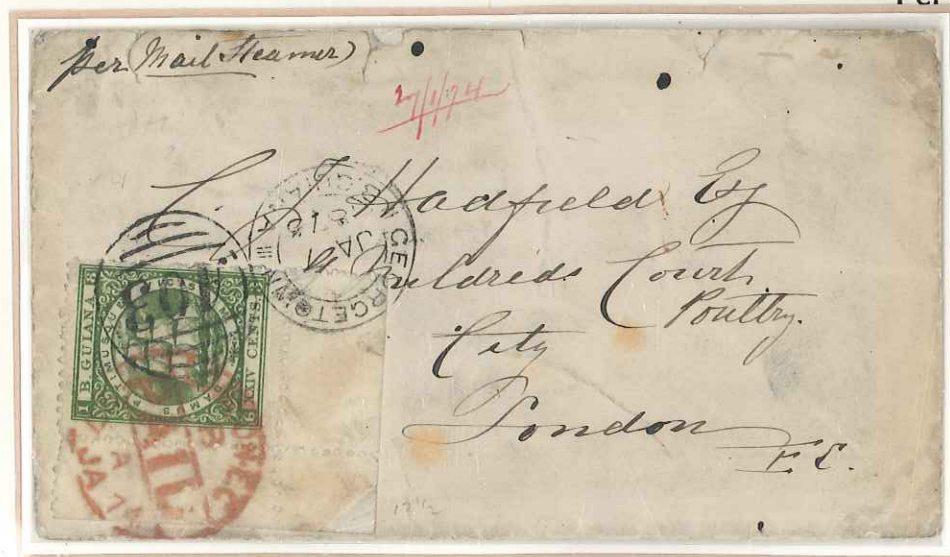 per (Mail Steamer)
27/1/74
C. J. Hadfield Esq
Mildreds Court
Poultry.
City
London
E.C.
GEORGETOWN
JA
B. GUIANA.
XXIV CENTS.
DAMUS PETIMUS
JA
13½